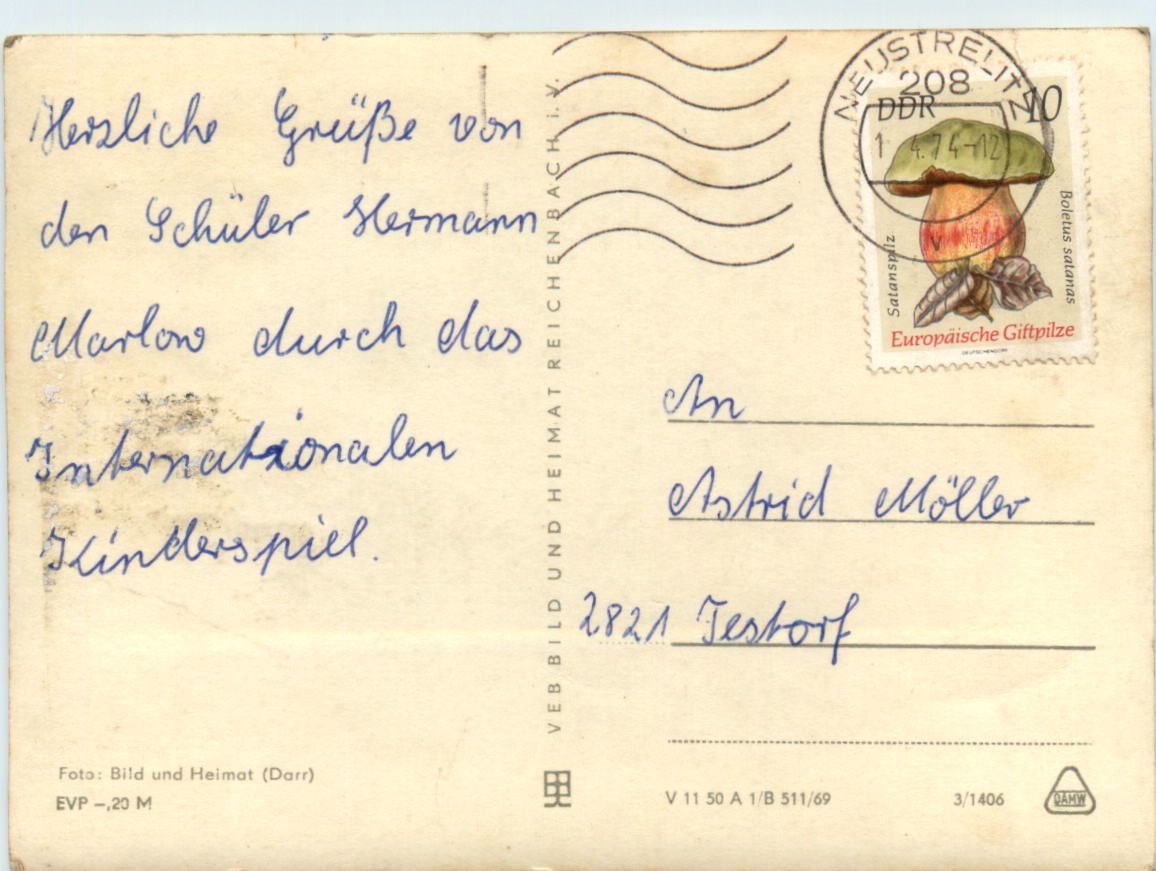 Herzliche Grüße von
den Schüler Hermann
Marlow durch das
Internationalen
Kinderspiel.
Foto: Bild und Heimat (Darr)
EVP –,20 M
VEB BILD UND HEIMAT REICHENBACH i. V.
NEUSTRELITZ
208
1. 4.74–12
v
DDR 10
Satanspilz
Boletus satanas
Europäische Giftpilze
DEUTSCHENDORF
An
Astrid Möller
2821 Testorf
V 11 50 A 1/B 511/69
3/1406
DAMW